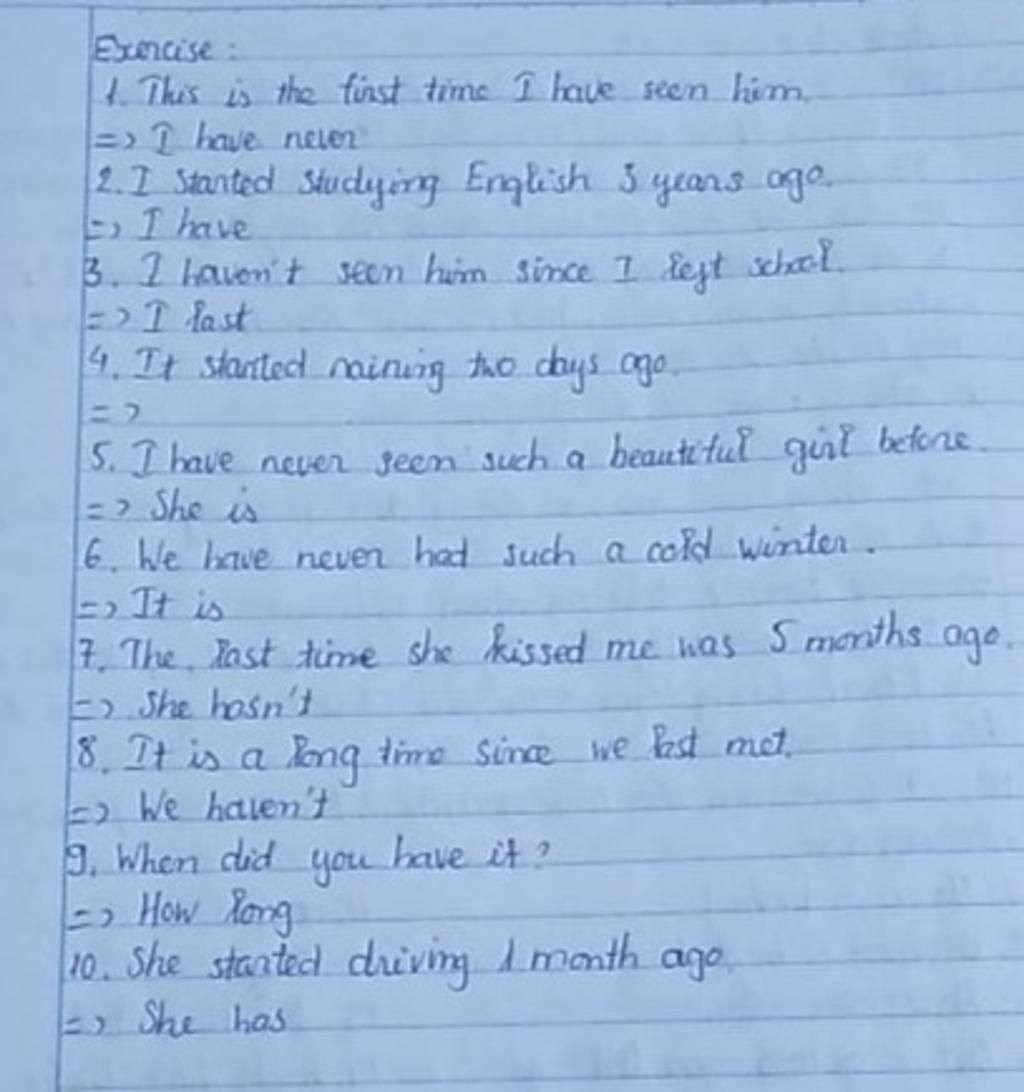 Exercise :
1. This is the first time I have seen him.
=> I have never
2. I started studying English 3 years ago.
=> I have
3. I haven't seen him since I left school.
=> I last
4. It started raining two days ago.
=>
5. I have never seen such a beautiful girl before.
=> She is
6. We have never had such a cold winter.
=> It is
7. The last time she kissed me was 5 months ago.
=> She hasn't
8. It is a long time since we last met.
=> We haven't
9. When did you have it?
=> How long
10. She started driving 1 month ago.
=> She has